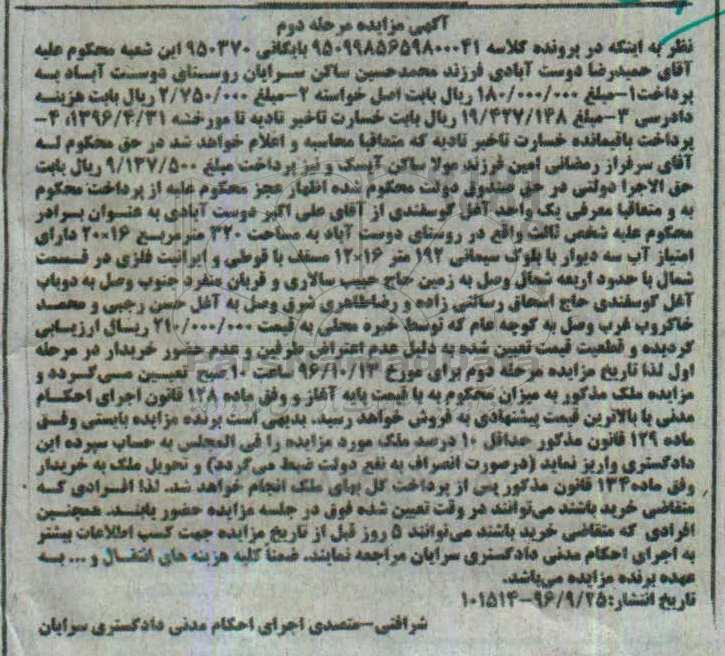 آگهی مزایده مرحله دوم
نظر به اینکه در پرونده کلاسه ۹۵۰۹۹۸۵۶۵۹۸۰۰۰۴۱ بایگانی ۹۵۰۳۷۰ این شعبه محکوم علیه
آقای حمیدرضا دوست آبادی فرزند محمدحسین ساکن سرایان روستای دوست آباد به
پرداخت۱-مبلغ ۱۸۰/۰۰۰/۰۰۰ ریال بابت اصل خواسته ۲-مبلغ ۲/۷۵۰/۰۰۰ ریال بابت هزینه
دادرسی ۳-مبلغ ۱۹/۴۲۷/۱۴۸ ریال بابت خسارت تاخیر تادیه تا مورخه ۱۳۹۶/۴/۳۱، ۴-
پرداخت باقیمانده خسارت تاخیر تادیه که متعاقبا محاسبه و اعلام خواهد شد در حق محکوم له
آقای سرفراز رمضانی امین فرزند مولا ساکن آیسک و نیز پرداخت مبلغ ۹/۱۳۷/۵۰۰ ریال بابت
حق الاجرا دولتی در حق صندوق دولت محکوم شده اظهار عجز محکوم علیه از پرداخت محکوم
به و متعاقبا معرفی یک واحد آغل گوسفندی از آقای علی اکبر دوست آبادی به عنوان برادر
محکوم علیه شخص ثالث واقع در روستای دوست آباد به مساحت ۳۲۰ مترمربع ۱۶×۲۰ دارای
امتیاز آب سه دیوار با بلوک سیمانی ۱۹۲ متر ۱۶×۱۲ مسقف با قوطی و ایرانیت فلزی در قسمت
شمال با حدود اربعه شمال وصل به زمین حاج حبیب سالاری و قربان منفرد جنوب وصل به دوباب
آغل گوسفندی حاج اسحاق رسالتی زاده و رضاطاهری شرق وصل به آغل حسن رجبی و محمد
خاکروب غرب وصل به کوچه عام که توسط خبره محلی به قیمت ۲۱۰/۰۰۰/۰۰۰ ریال ارزیابی
گردیده و قطعیت قیمت تعیین شده به دلیل عدم اعتراض طرفین و عدم حضور خریدار در مرحله
اول لذا تاریخ مزایده مرحله دوم برای مورخ ۹۶/۱۰/۱۴ ساعت ۱۰ صبح تعیین می‌گردد و
مزایده ملک مذکور به میزان محکوم به با قیمت پایه آغاز و وفق ماده ۱۲۸ قانون اجرای احکام
مدنی با بالاترین قیمت پیشنهادی به فروش خواهد رسید. بدیهی است برنده مزایده بایستی وفق
ماده ۱۲۹ قانون مذکور حداقل ۱۰ درصد ملک مورد مزایده را فی المجلس به حساب سپرده این
دادگستری واریز نماید (درصورت انصراف به نفع دولت ضبط می‌گردد) و تحویل ملک به خریدار
وفق ماده۱۳۴ قانون مذکور پس از پرداخت کل بهای ملک انجام خواهد شد. لذا افرادی که
متقاضی خرید باشند می‌توانند در وقت تعیین شده فوق در جلسه مزایده حضور یابند. همچنین
افرادی که متقاضی خرید باشند می‌توانند ۵ روز قبل از تاریخ مزایده جهت کسب اطلاعات بیشتر
به اجرای احکام مدنی دادگستری سرایان مراجعه نمایند. ضمنا کلیه هزینه های انتقال و ... به
عهده برنده مزایده می‌باشد.
تاریخ انتشار:۹۶/۹/۲۵-۱۰۱۵۱۴
شرافتی-متصدی اجرای احکام مدنی دادگستری سرایان